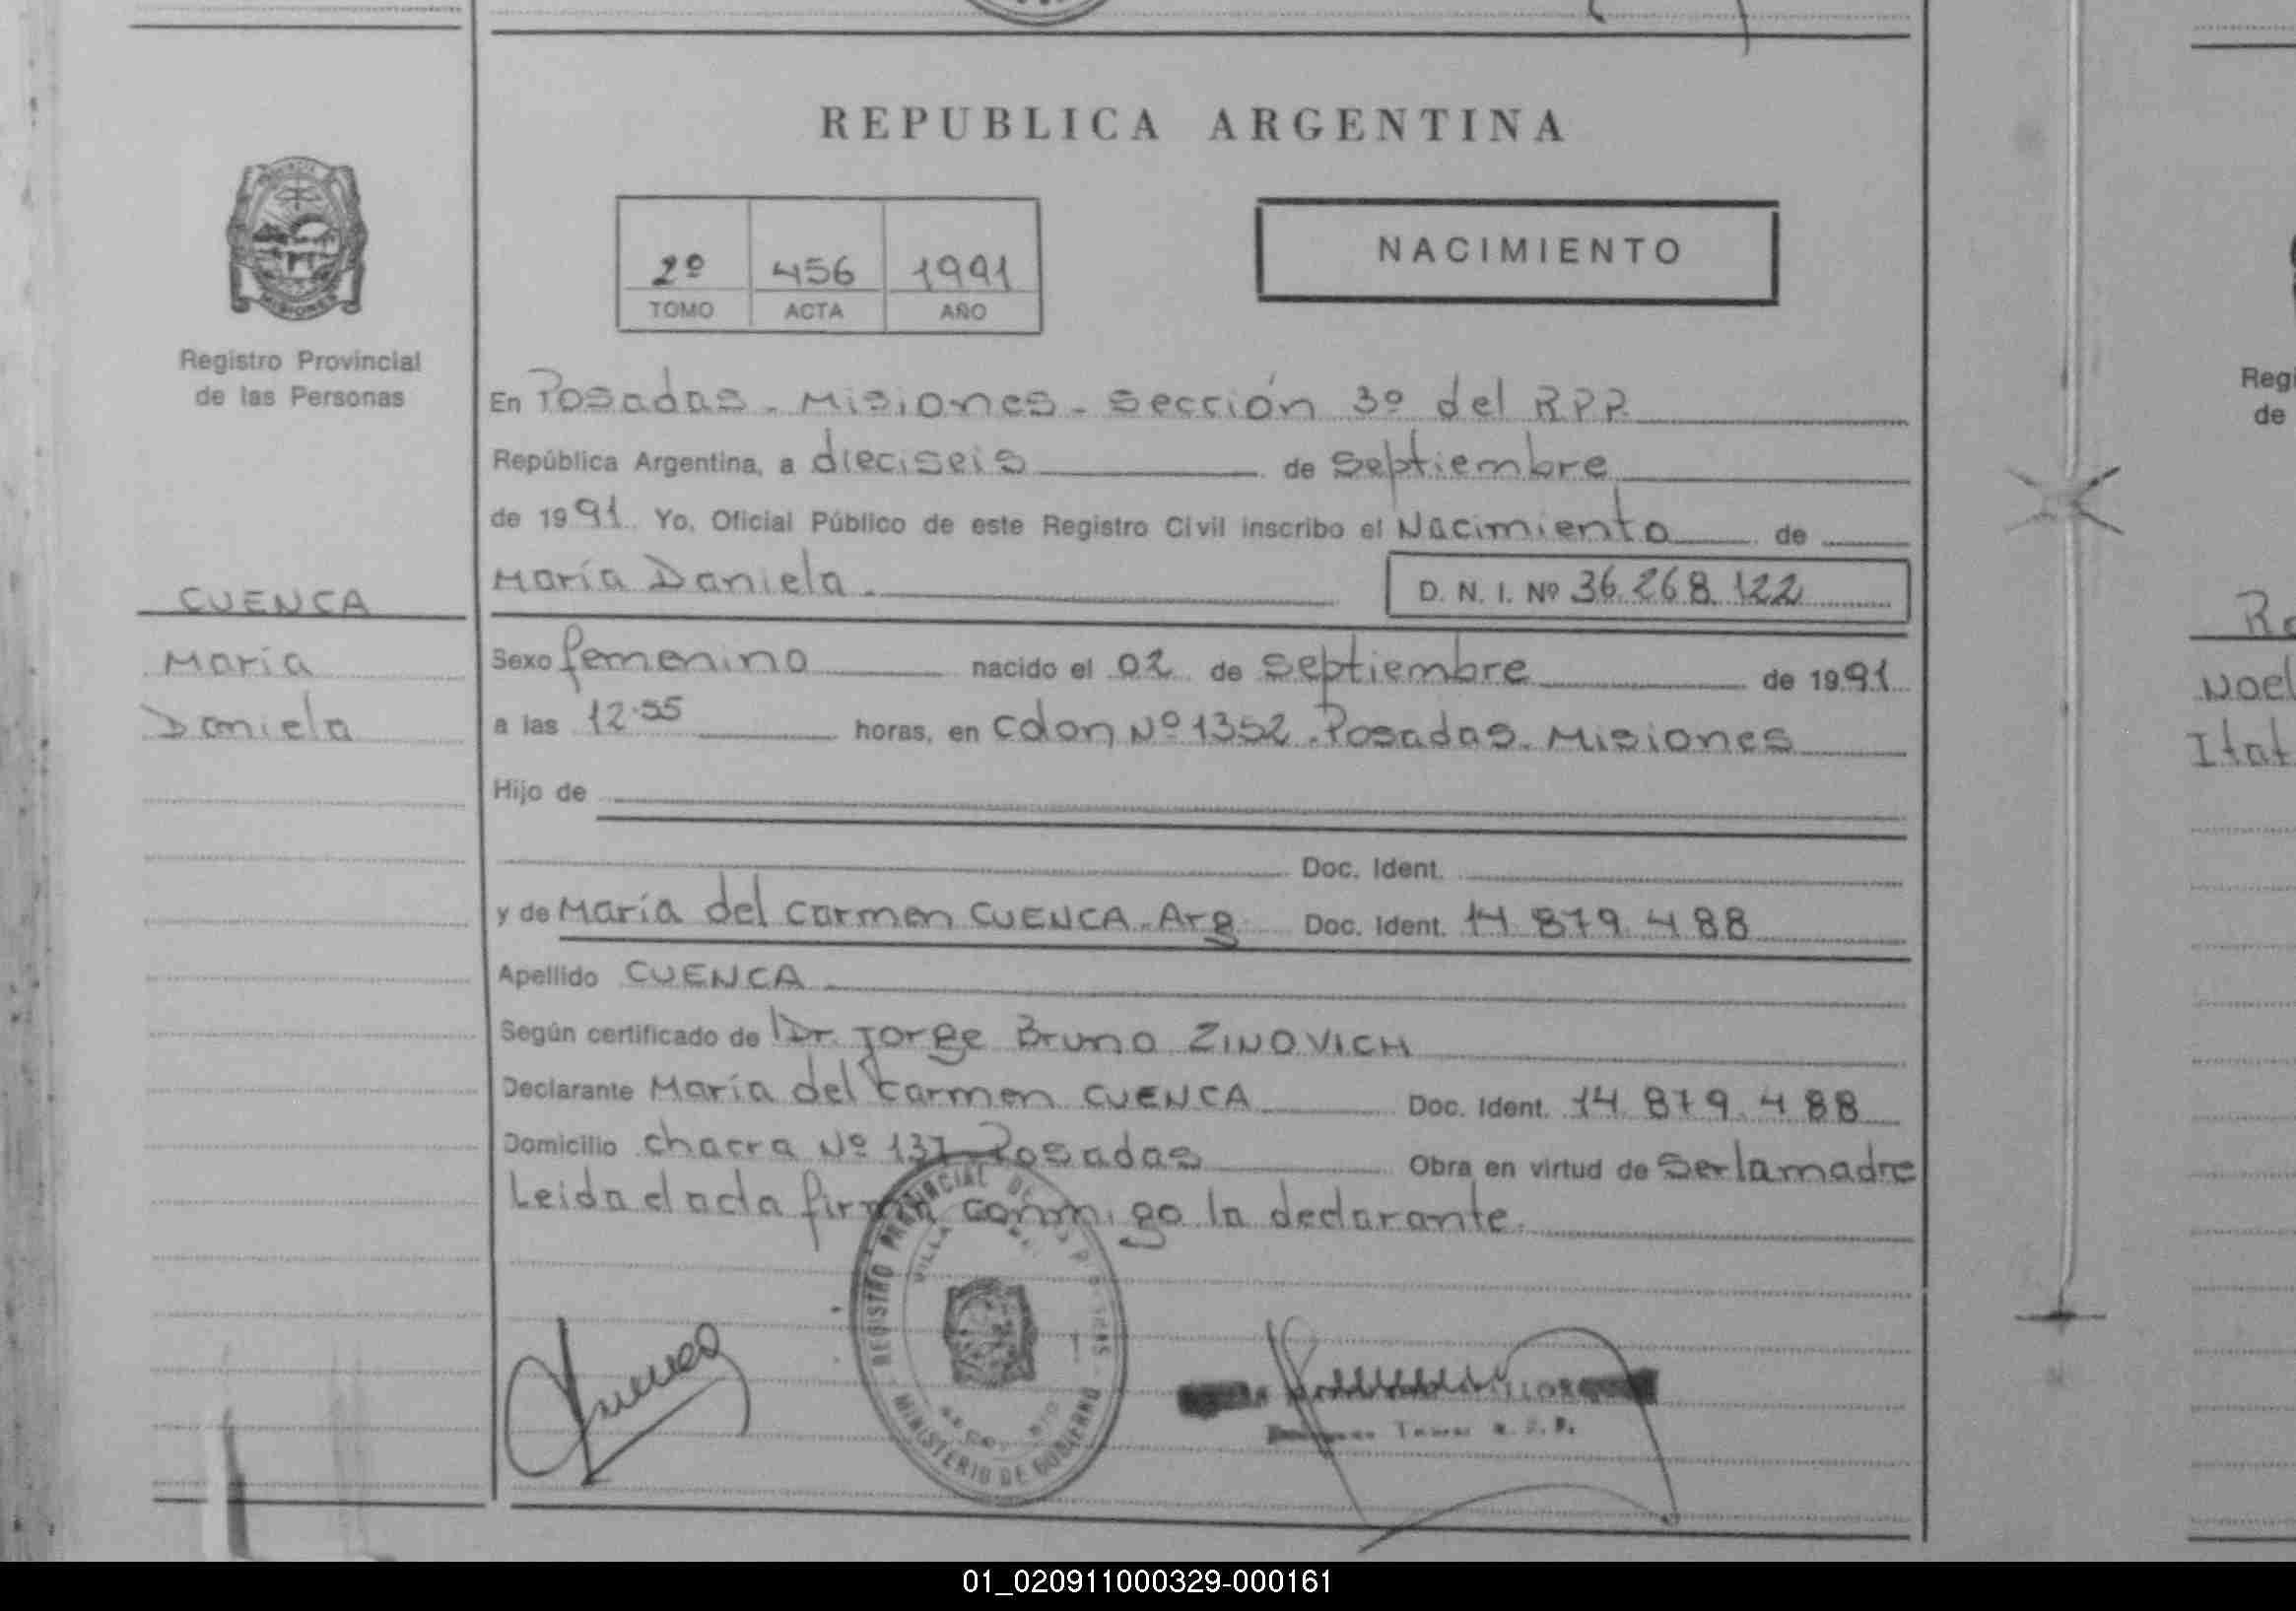 REPUBLICA ARGENTINA
NACIMIENTO
2º 456 1991
TOMO ACTA AÑO
MISIONES
Registro Provincial
de las Personas
CUENCA
María
Daniela
En Posadas - Misiones - Sección 3º del RPP.
República Argentina, a dieciseis de Septiembre
de 1991. Yo, Oficial Público de este Registro Civil inscribo el Nacimiento de
María Daniela. D. N. I. Nº 36.268.122
Sexo femenino nacido el 02 de Septiembre de 1991
a las 12.55 horas, en Colon Nº 1352. Posadas. Misiones
Hijo de
Doc. Ident.
y de María del Carmen CUENCA. Arg. Doc. Ident. 14.879.488
Apellido CUENCA
Según certificado de Dr. Jorge Bruno ZINOVICH
Declarante María del Carmen CUENCA Doc. Ident. 14.879.488
Domicilio chacra Nº 137 Posadas Obra en virtud de Ser la madre
Leida el acta firma conmigo la declarante.
REGISTRO PROVINCIAL DE
VILLA
MINISTERIO DE GOBIERNO
Regi
de
Noel
Itat
01_020911000329-000161